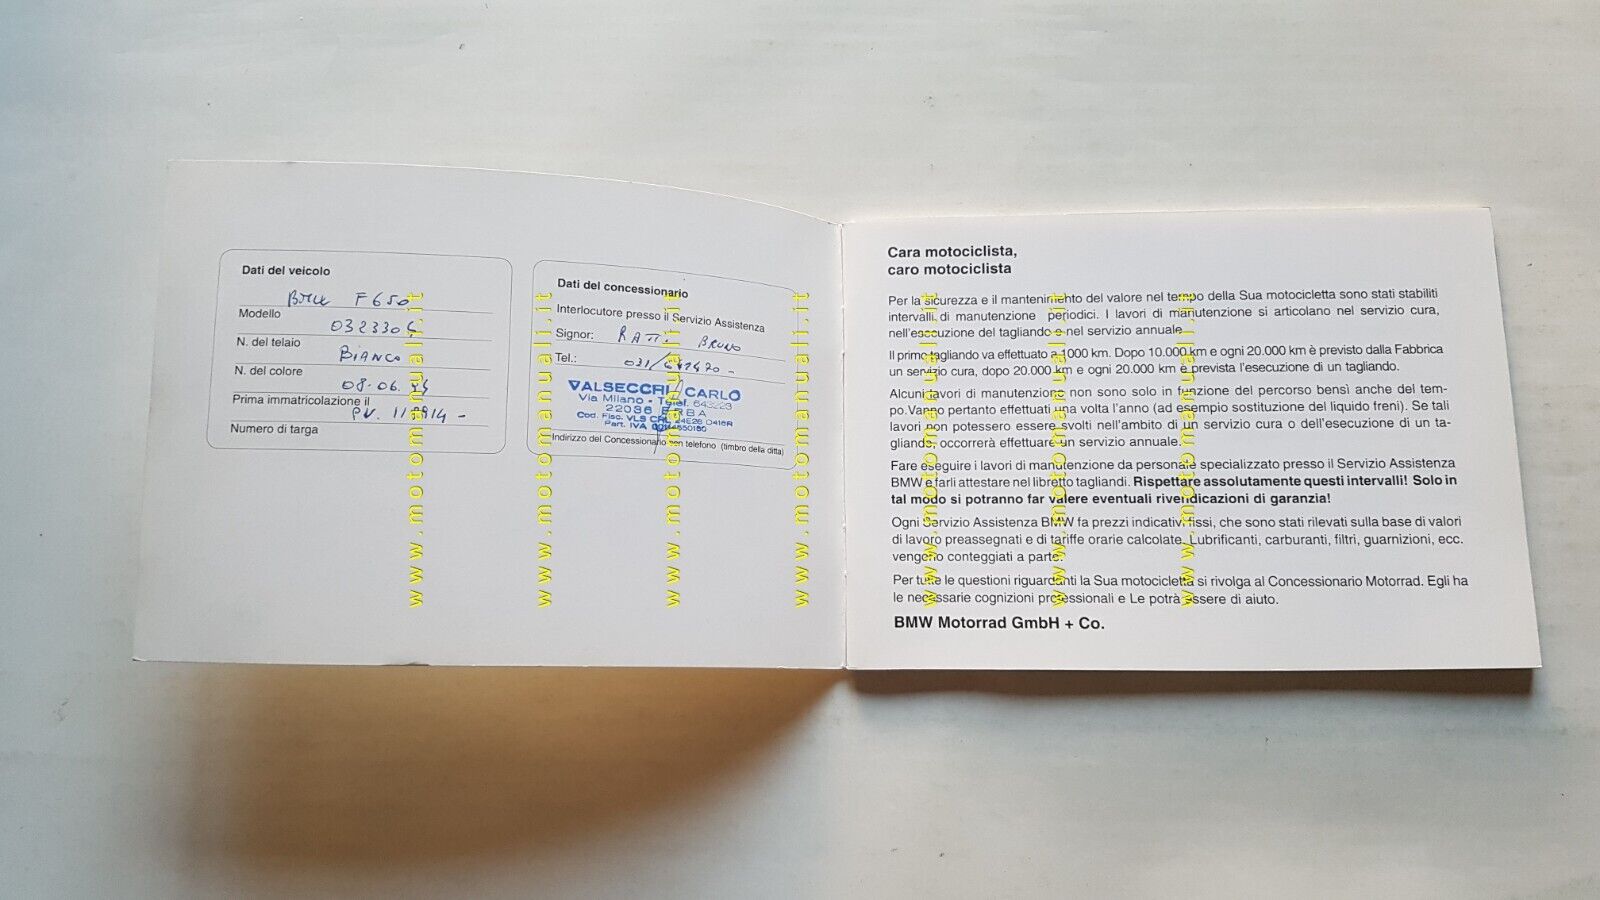 Dati del veicolo
BMW F650
Modello
N. del telaio
Bianco
N. del colore
08.06.
Prima immatricolazione il
PV.
Numero di targa
Dati del concessionario
Interlocutore presso il Servizio Assistenza
Signor: Bruno
Tel.: 031/
VALSECCHI CARLO
Via Milano - Telef. 643223
22036 ERBA
Cod. Fisc. VLS CRL
Part. IVA
Indirizzo del Concessionario con telefono (timbro della ditta)
Cara motociclista,
caro motociclista
Per la sicurezza e il mantenimento del valore nel tempo della Sua motocicletta sono stati stabiliti
intervalli di manutenzione periodici. I lavori di manutenzione si articolano nel servizio cura,
nell'esecuzione del tagliando e nel servizio annuale.
Il primo tagliando va effettuato a 1000 km. Dopo 10.000 km e ogni 20.000 km è previsto dalla Fabbrica
un servizio cura, dopo 20.000 km e ogni 20.000 km è prevista l'esecuzione di un tagliando.
Alcuni lavori di manutenzione non sono solo in funzione del percorso bensì anche del tem-
po.Vanno pertanto effettuati una volta l'anno (ad esempio sostituzione del liquido freni). Se tali
lavori non potessero essere svolti nell'ambito di un servizio cura o dell'esecuzione di un ta-
gliando, occorrerà effettuare un servizio annuale.
Fare eseguire i lavori di manutenzione da personale specializzato presso il Servizio Assistenza
BMW e farli attestare nel libretto tagliandi. Rispettare assolutamente questi intervalli! Solo in
tal modo si potranno far valere eventuali rivendicazioni di garanzia!
Ogni Servizio Assistenza BMW fa prezzi indicativi fissi, che sono stati rilevati sulla base di valori
di lavoro preassegnati e di tariffe orarie calcolate. Lubrificanti, carburanti, filtri, guarnizioni, ecc.
vengono conteggiati a parte.
Per tutte le questioni riguardanti la Sua motocicletta si rivolga al Concessionario Motorrad. Egli ha
le necessarie cognizioni professionali e Le potrà essere di aiuto.
BMW Motorrad GmbH + Co.
www.motomanuali.it
www.motomanuali.it
www.motomanuali.it
www.motomanuali.it
www.motomanuali.it
www.motomanuali.it
www.motomanuali.it